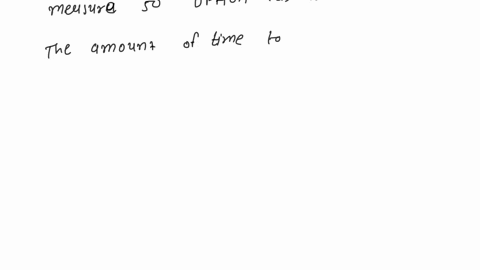 measure so
The amount of time to